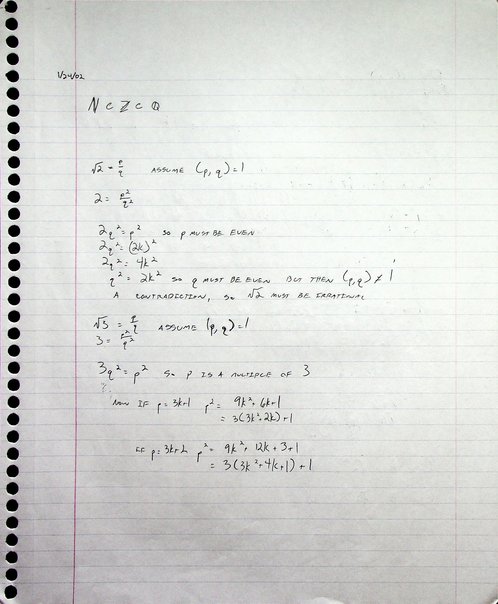 1/24/02
ℕ ⊂ ℤ ⊂ ℚ
√2 = p/q ASSUME (p, q) = 1
2 = p²/q²
2q² = p² SO p MUST BE EVEN
2q² = (2k)²
2q² = 4k²
q² = 2k² SO q MUST BE EVEN BUT THEN (p,q) ≠ 1
A CONTRADICTION, SO √2 MUST BE IRRATIONAL
√3 = p/q ASSUME (p, q) = 1
3 = p²/q²
3q² = p² SO P IS A MULTIPLE OF 3
NOW IF p = 3k+1 p² = 9k² + 6k + 1
= 3(3k² + 2k) + 1
IF p = 3k+2 p² = 9k² + 12k + 3 + 1
= 3(3k² + 4k + 1) + 1